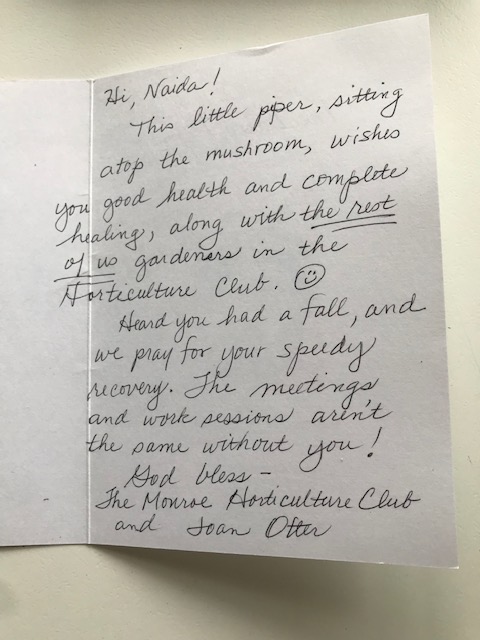 Hi, Naida!
This little piper, sitting
atop the mushroom, wishes
you good health and complete
healing, along with the rest
of us gardeners in the
Horticulture Club. ☺
Heard you had a fall, and
we pray for your speedy
recovery. The meetings
and work sessions aren't
the same without you!
God bless –
The Monroe Horticulture Club
and Joan Otter